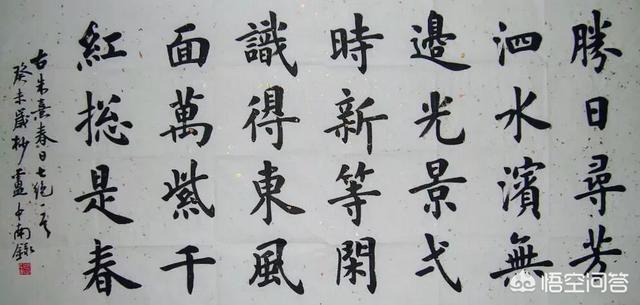 勝日尋芳
泗水濱無
邊光景弌
時新等閑
識得東風
面萬紫千
紅総是春
朱熹春日七絶
癸未歲杪盧中南錄
悟空问答